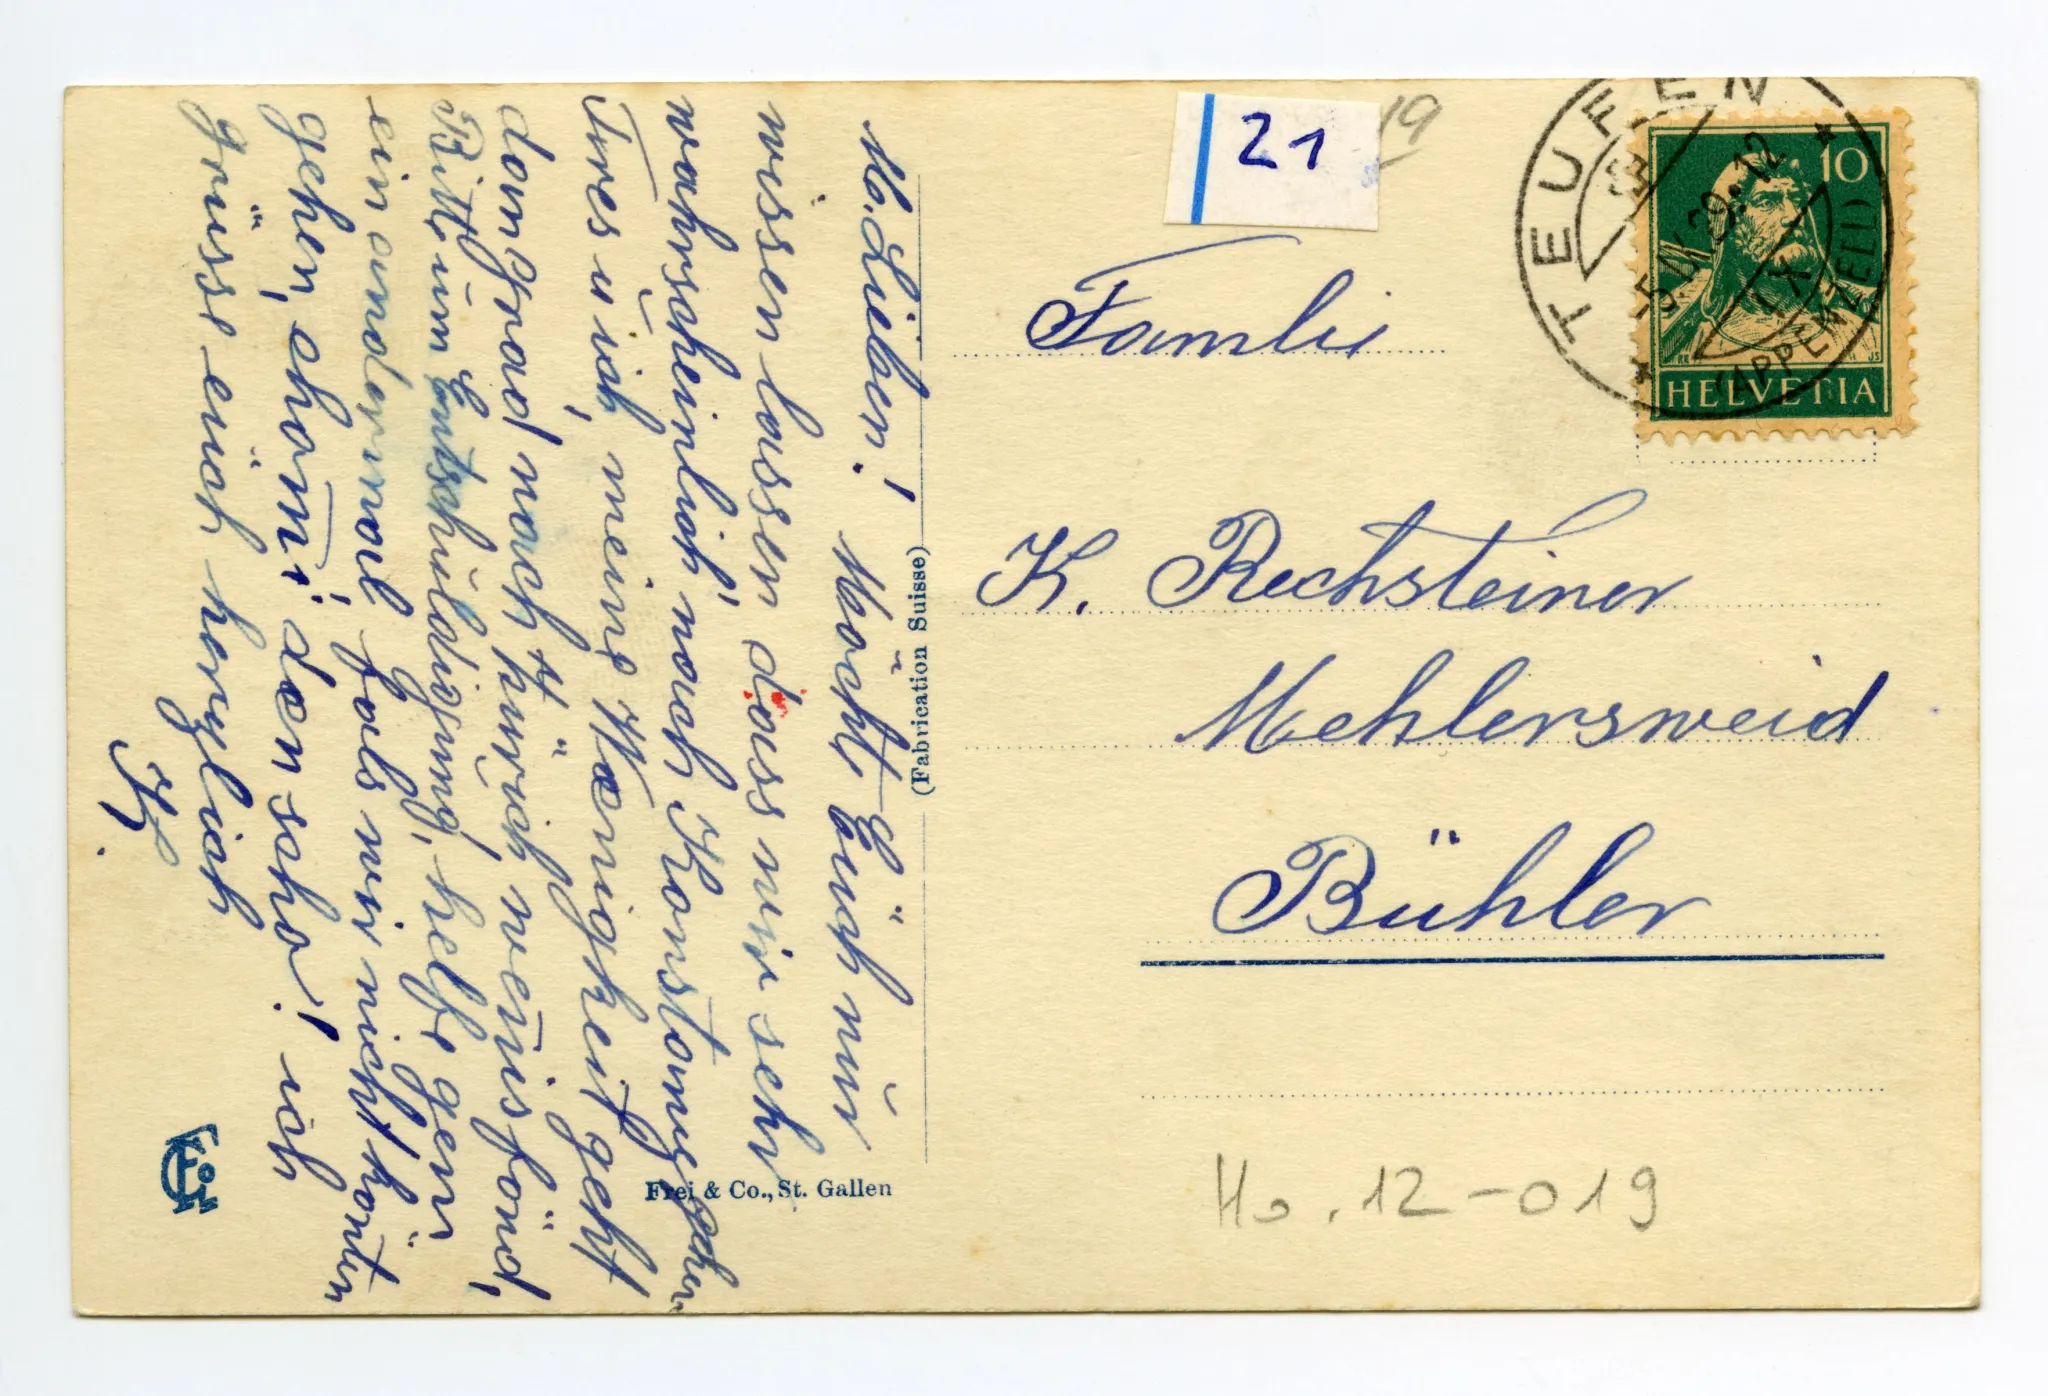 M. Lieben! Möcht Euch nur
wissen lassen dass mir sehr
wahrscheinlich nach Konstanz gehen.
Tres u ich, meine Wenigkeit geht
dan grad nach Zürich, wenns fönd,
Bitte um Entschuldigung, helfe gern
ein andermal fals wir nicht hörten
gehen, chömi den scho! ich
grüsse euch herzlich
K.
(Fabrication Suisse)
Frei & Co., St. Gallen
21
19
TEUFEN
(APPENZELL)
5.IV.29.-12
10
HELVETIA
Familie
K. Rechsteiner
Mehlersweid
Bühler
Ho. 12-019